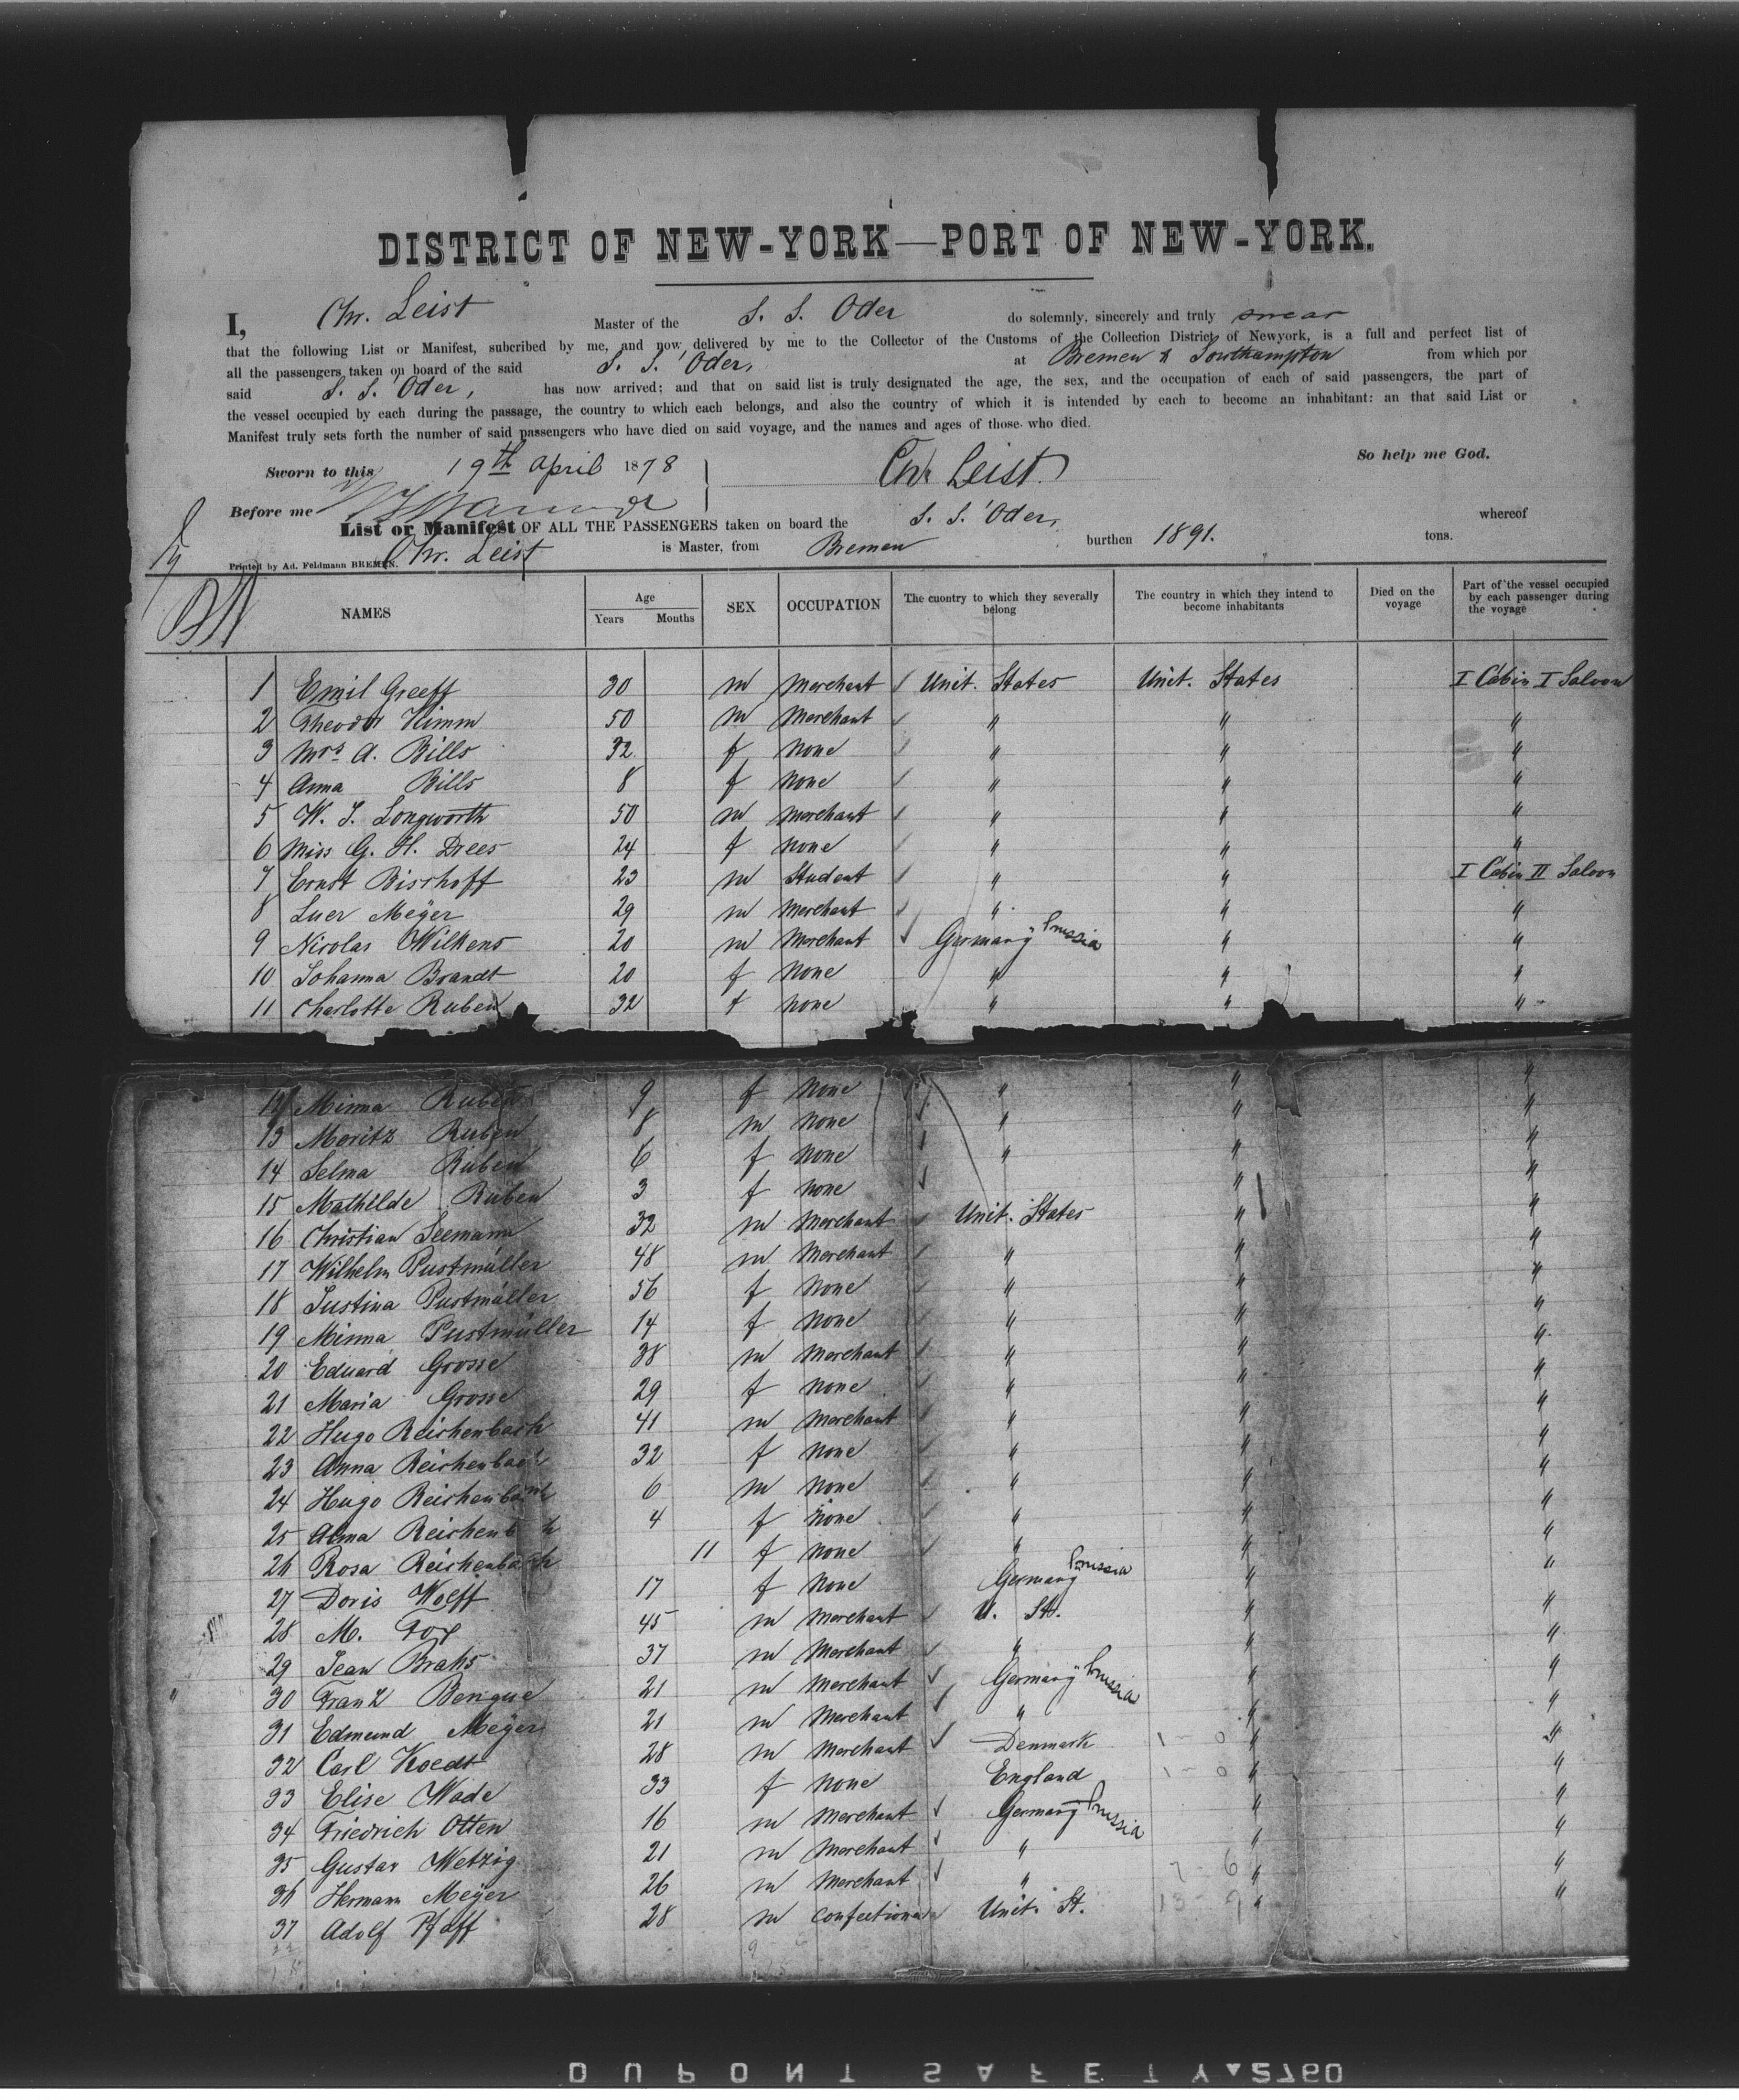 DISTRICT OF NEW-YORK—PORT OF NEW-YORK.
I, Chr. Leist Master of the S. S. Oder do solemnly, sincerely and truly swear
that the following List or Manifest, subcribed by me, and now delivered by me to the Collector of the Customs of the Collection District of Newyork, is a full and perfect list of
all the passengers taken on board of the said S. S. Oder, at Bremen & Southampton from which por
said S. S. Oder, has now arrived; and that on said list is truly designated the age, the sex, and the occupation of each of said passengers, the part of
the vessel occupied by each during the passage, the country to which each belongs, and also the country of which it is intended by each to become an inhabitant: an that said List or
Manifest truly sets forth the number of said passengers who have died on said voyage, and the names and ages of those who died.
So help me God.
Sworn to this 19th April 1878 Chr. Leist
Before me
List or Manifest OF ALL THE PASSENGERS taken on board the S. S. Oder, whereof
Chr. Leist is Master, from Bremen burthen 1891. tons.
Printed by Ad. Feldmann BREMEN.
NAMES Age Years Months SEX OCCUPATION The cuontry to which they severally belong The country in which they intend to become inhabitants Died on the voyage Part of the vessel occupied by each passenger during the voyage
1 Emil Greeff 30 m Merchant Unit. States Unit. States I Cabin I Saloon
2 Theodor Kimm 50 m Merchant " " "
3 Mrs A. Bills 32 f None " " "
4 Anna Bills 8 f None " " "
5 W. J. Longworth 50 m Merchant " " "
6 Miss G. H. Drees 24 f None " " "
7 Ernst Bischoff 23 m Student " " I Cabin II Saloon
8 Luer Meÿer 29 m Merchant " " "
9 Nicolas Wilkens 20 m Merchant Germany Prussia " "
10 Johanna Brandt 20 f None " " "
11 Charlotte Ruben 32 f None " " "
12 Minna Ruben 9 f None " " "
13 Moritz Ruben 8 m None " " "
14 Selma Ruben 6 f None " " "
15 Mathilde Ruben 3 f None " "
16 Christian Seemann 32 m Merchant Unit. States " "
17 Wilhelm Pustmüller 48 m Merchant " " "
18 Justina Pustmüller 56 f None " " "
19 Minna Pustmüller 14 f None " " "
20 Eduard Grosse 38 m Merchant " " "
21 Maria Grosse 29 f None " " "
22 Hugo Reichenbach 41 m Merchant " " "
23 Anna Reichenbach 32 f None " " "
24 Hugo Reichenbach 6 m None " " "
25 Alma Reichenb h 4 f None " " "
26 Rosa Reichenbach 11 f None " " "
27 Doris Wolff 17 f None Germany Prussia " "
28 M. Fox 45 m Merchant U. St. " "
29 Jean Brahs 37 m Merchant " " "
30 Franz Bengue 21 m Merchant Germany Prussia " "
31 Edmund Meÿer 21 m Merchant " " "
32 Carl Koedt 28 m Merchant Denmark 1 - 0 " "
33 Elise Wade 33 f None England 1 - 0 " "
34 Friedrich Otten 16 m Merchant Germany Prussia " "
35 Gustav Metzig 21 m Merchant " " "
36 Hermann Meÿer 26 m Merchant " 7 - 6 " "
37 Adolf Pfaff 28 m Confectioner Unit. St. 13 - 9 " "
DUPONT SAFETY 2760